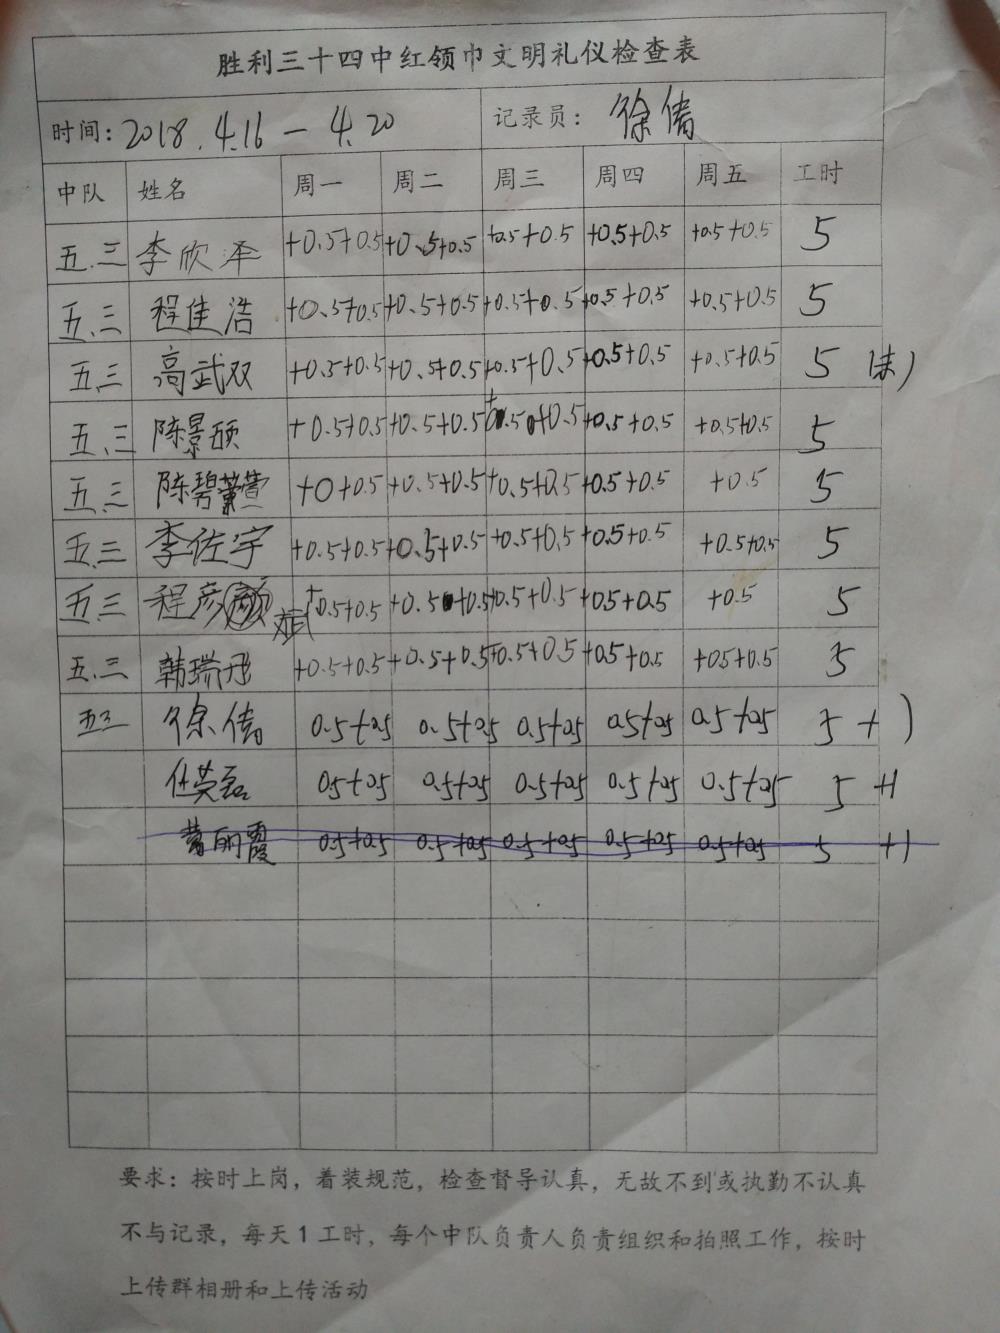 胜利三十四中红领巾文明礼仪检查表
时间: 2018.4.16 — 4.20 记录员: 徐倩
中队 姓名 周一 周二 周三 周四 周五 工时
五.三 李欣泽 +0.5+0.5 +0.5+0.5 +0.5+0.5 +0.5+0.5 +0.5+0.5 5
五.三 程佳浩 +0.5+0.5 +0.5+0.5 +0.5+0.5 +0.5+0.5 +0.5+0.5 5
五.三 高武双 +0.5+0.5 +0.5+0.5 +0.5+0.5 +0.5+0.5 +0.5+0.5 5
五.三 陈景硕 +0.5+0.5 +0.5+0.5 +0.5+0.5 +0.5+0.5 +0.5+0.5 5
五.三 陈碧萱 +0+0.5 +0.5+0.5 +0.5+0.5 +0.5+0.5 +0.5 5
五.三 李佐宇 +0.5+0.5 +0.5+0.5 +0.5+0.5 +0.5+0.5 +0.5+0.5 5
五.三 程彦斌 +0.5+0.5 +0.5+0.5 +0.5+0.5 +0.5+0.5 +0.5 5
五.三 韩瑞彤 +0.5+0.5 +0.5+0.5 +0.5+0.5 +0.5+0.5 +0.5+0.5 5
五三 徐倩 0.5+0.5 0.5+0.5 0.5+0.5 0.5+0.5 0.5+0.5 5 +)
任英磊 0.5+0.5 0.5+0.5 0.5+0.5 0.5+0.5 0.5+0.5 5 +1
丽霞 0.5+0.5 0.5+0.5 0.5+0.5 0.5+0.5 0.5+0.5 5 +1
要求: 按时上岗，着装规范，检查督导认真，无故不到或执勤不认真
不与记录，每天1工时，每个中队负责人负责组织和拍照工作，按时
上传群相册和上传活动